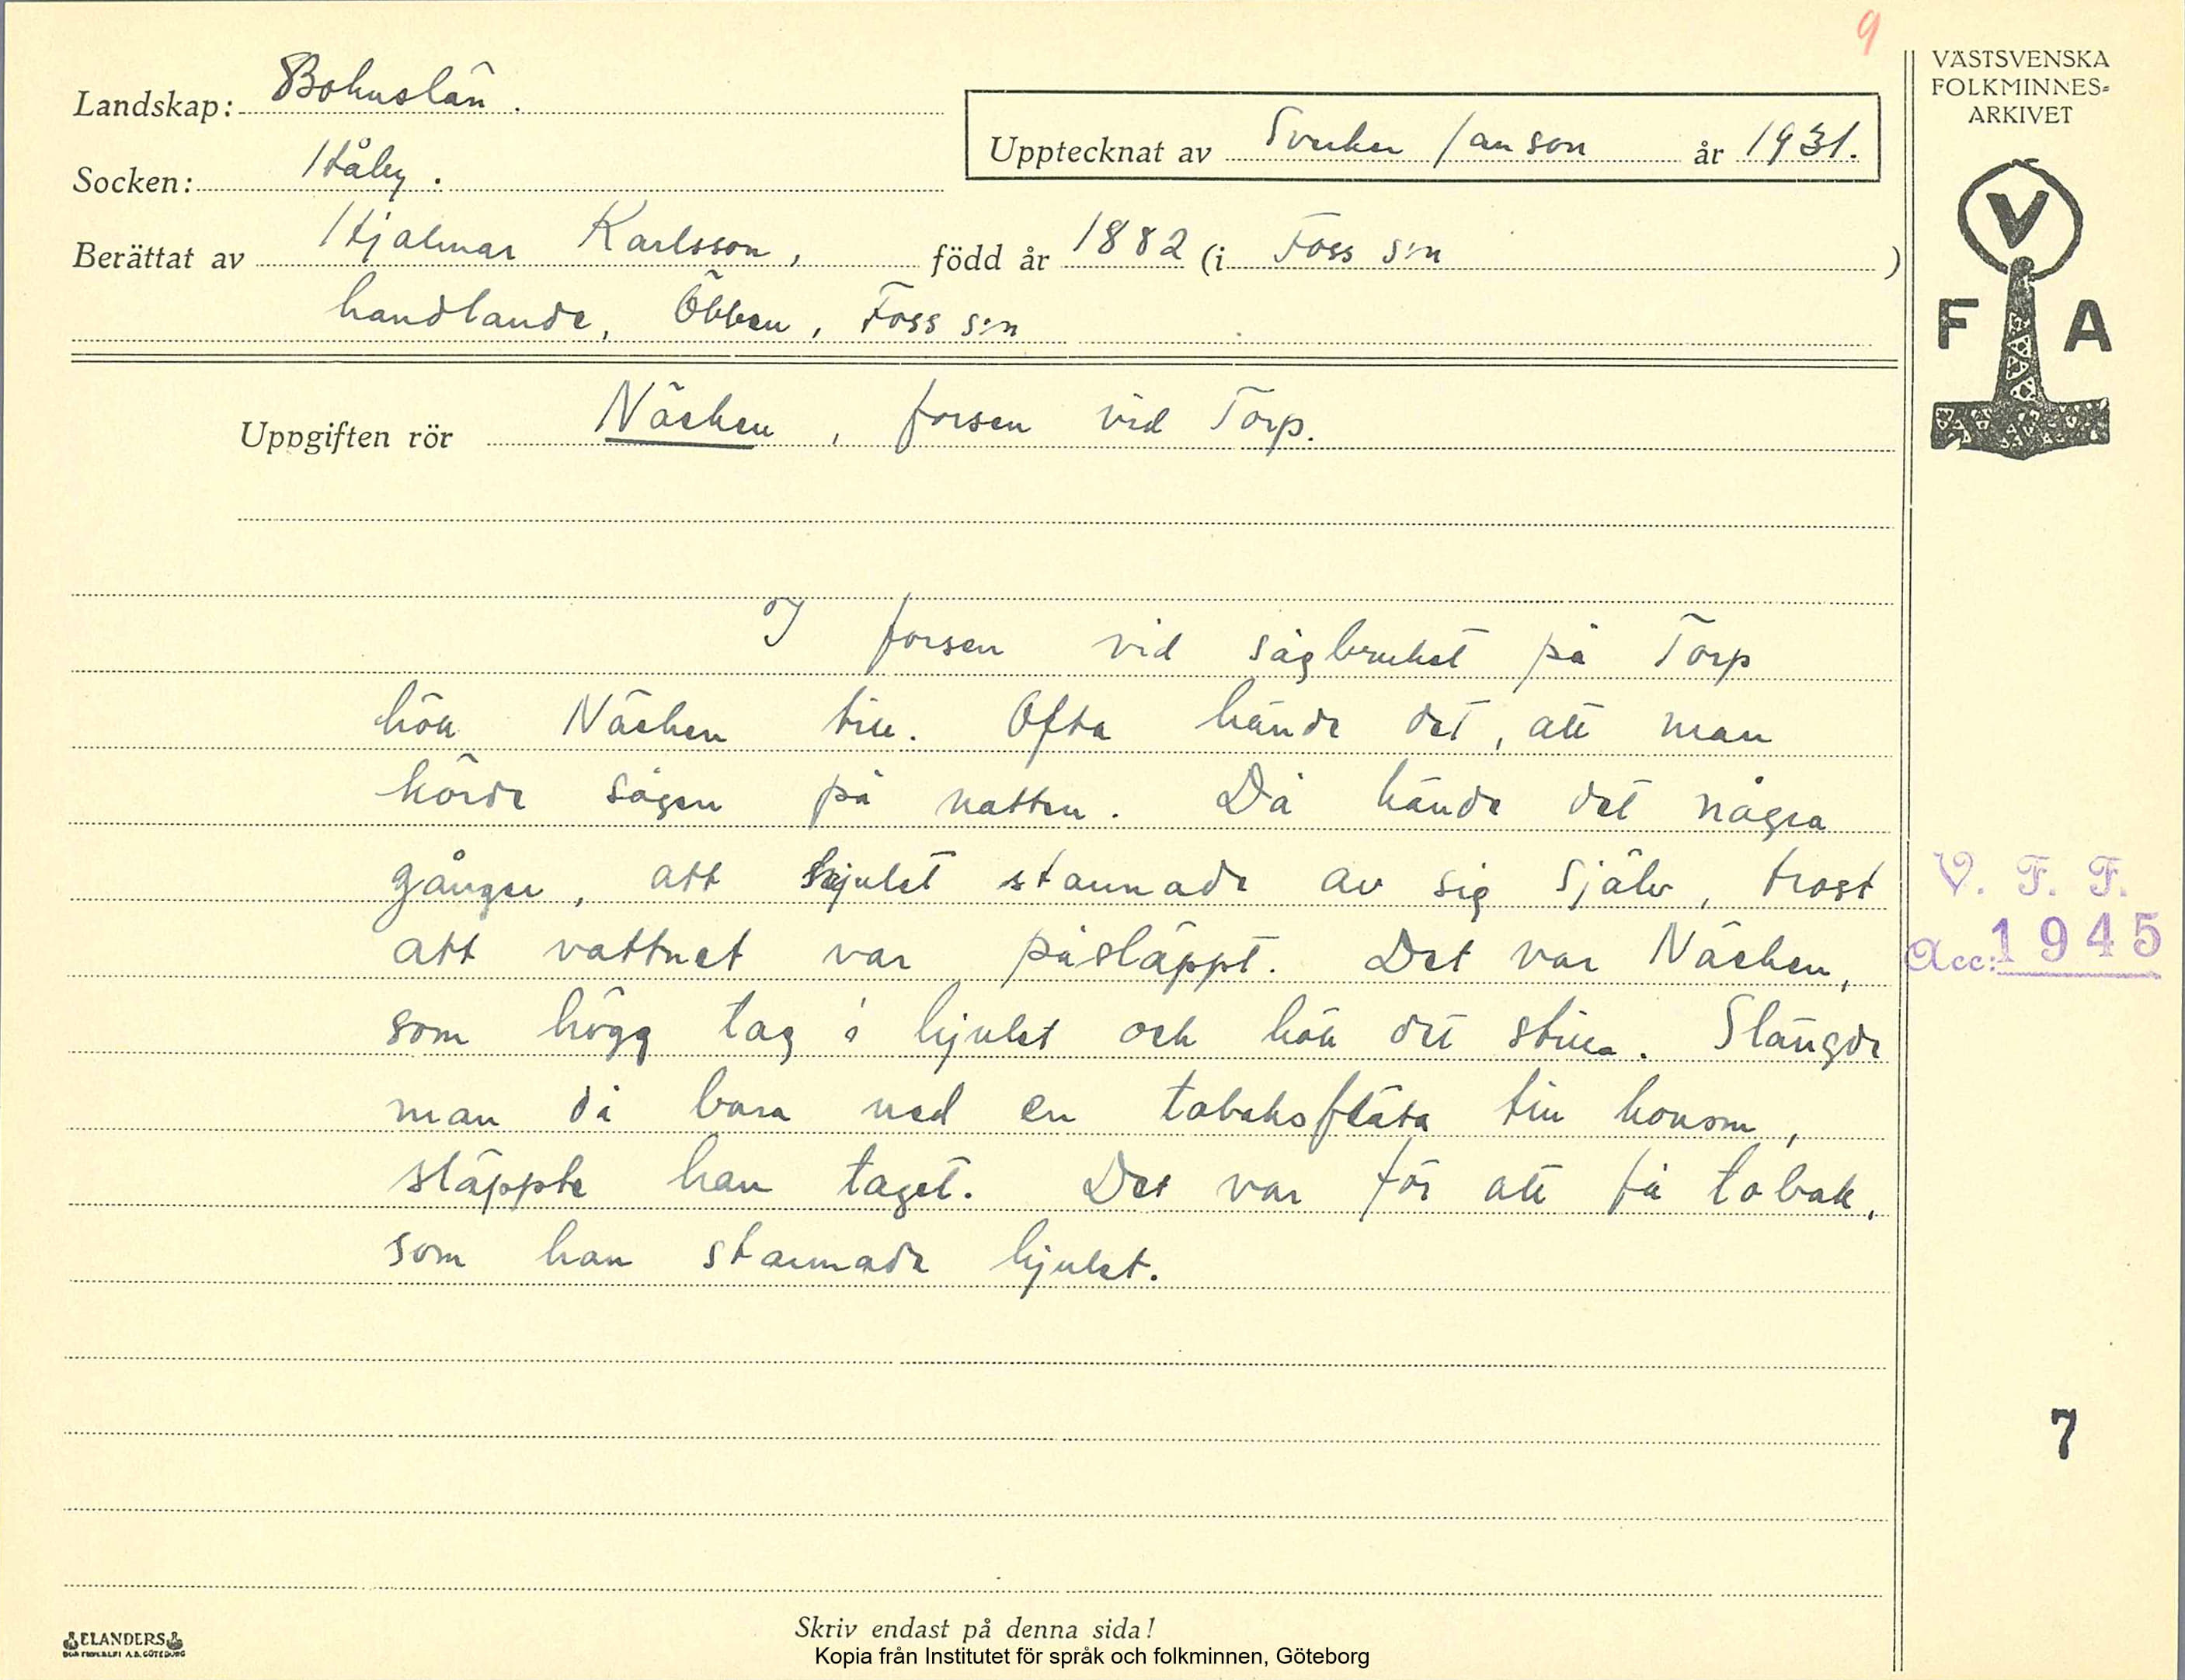 9
VÄSTSVENSKA
FOLKMINNES-
ARKIVET
Landskap: Bohuslän.
Upptecknat av Sverker Janson år 1931.
Socken: Håby.
Berättat av Hjalmar Karlsson, född år 1882 (i Foss s:n )
handlande, Öbben, Foss s:n
V
F A
Uppgiften rör Näcken, forsen vid Torp.
I forsen vid sågbruket på Torp
höll Näcken till. Ofta hände det, att man
hörde sågen på natten. Då hände det några
gånger, att hjulet stannade av sig själv, trost
att vattnet var påsläppt. Det var Näcken,
som högg tag i hjulet och höll det stilla. Slängde
man då bara ned en tobaksfläta till honom,
släppte han taget. Det var för att få tobak,
som han stannade hjulet.
V. F. F.
Acc: 1945
7
Skriv endast på denna sida!
ELANDERS
A.B. GÖTEBORG
Kopia från Institutet för språk och folkminnen, Göteborg